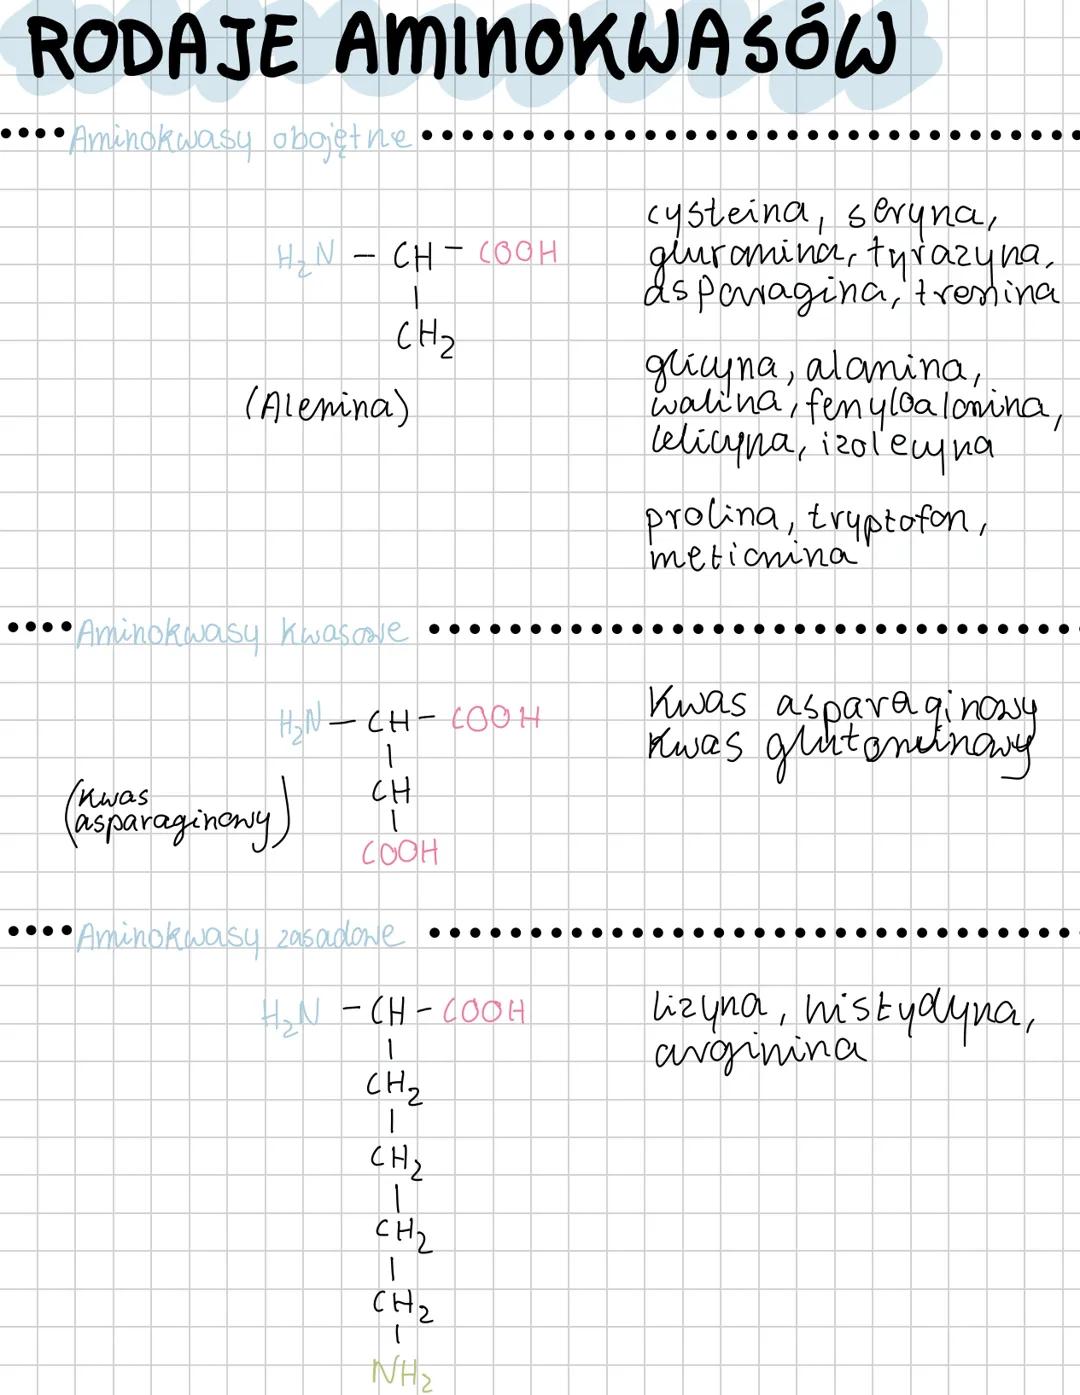 RODAJE AMINOKWASÓW
Aminokwasy obojętne
H₂N – CH – COOH
|
CH₂
(Alenina)
cysteina, seryna,
gluromina, tyrazyna,
asparagina, trenina
glicyna, alanina,
walina, fenyloalanina,
lelicyna, izolecyna
prolina, tryptofon,
metionina
Aminokwasy kwasowe
H₂N – CH – COOH
|
CH
|
COOH
(kwas
asparaginowy)
Kwas asparaginowy
Kwas glutominowy
Aminokwasy zasadowe
H₂N – CH – COOH
|
CH₂
|
CH₂
|
CH₂
|
CH₂
|
NH₂
lizyna, histydyna,
arginina